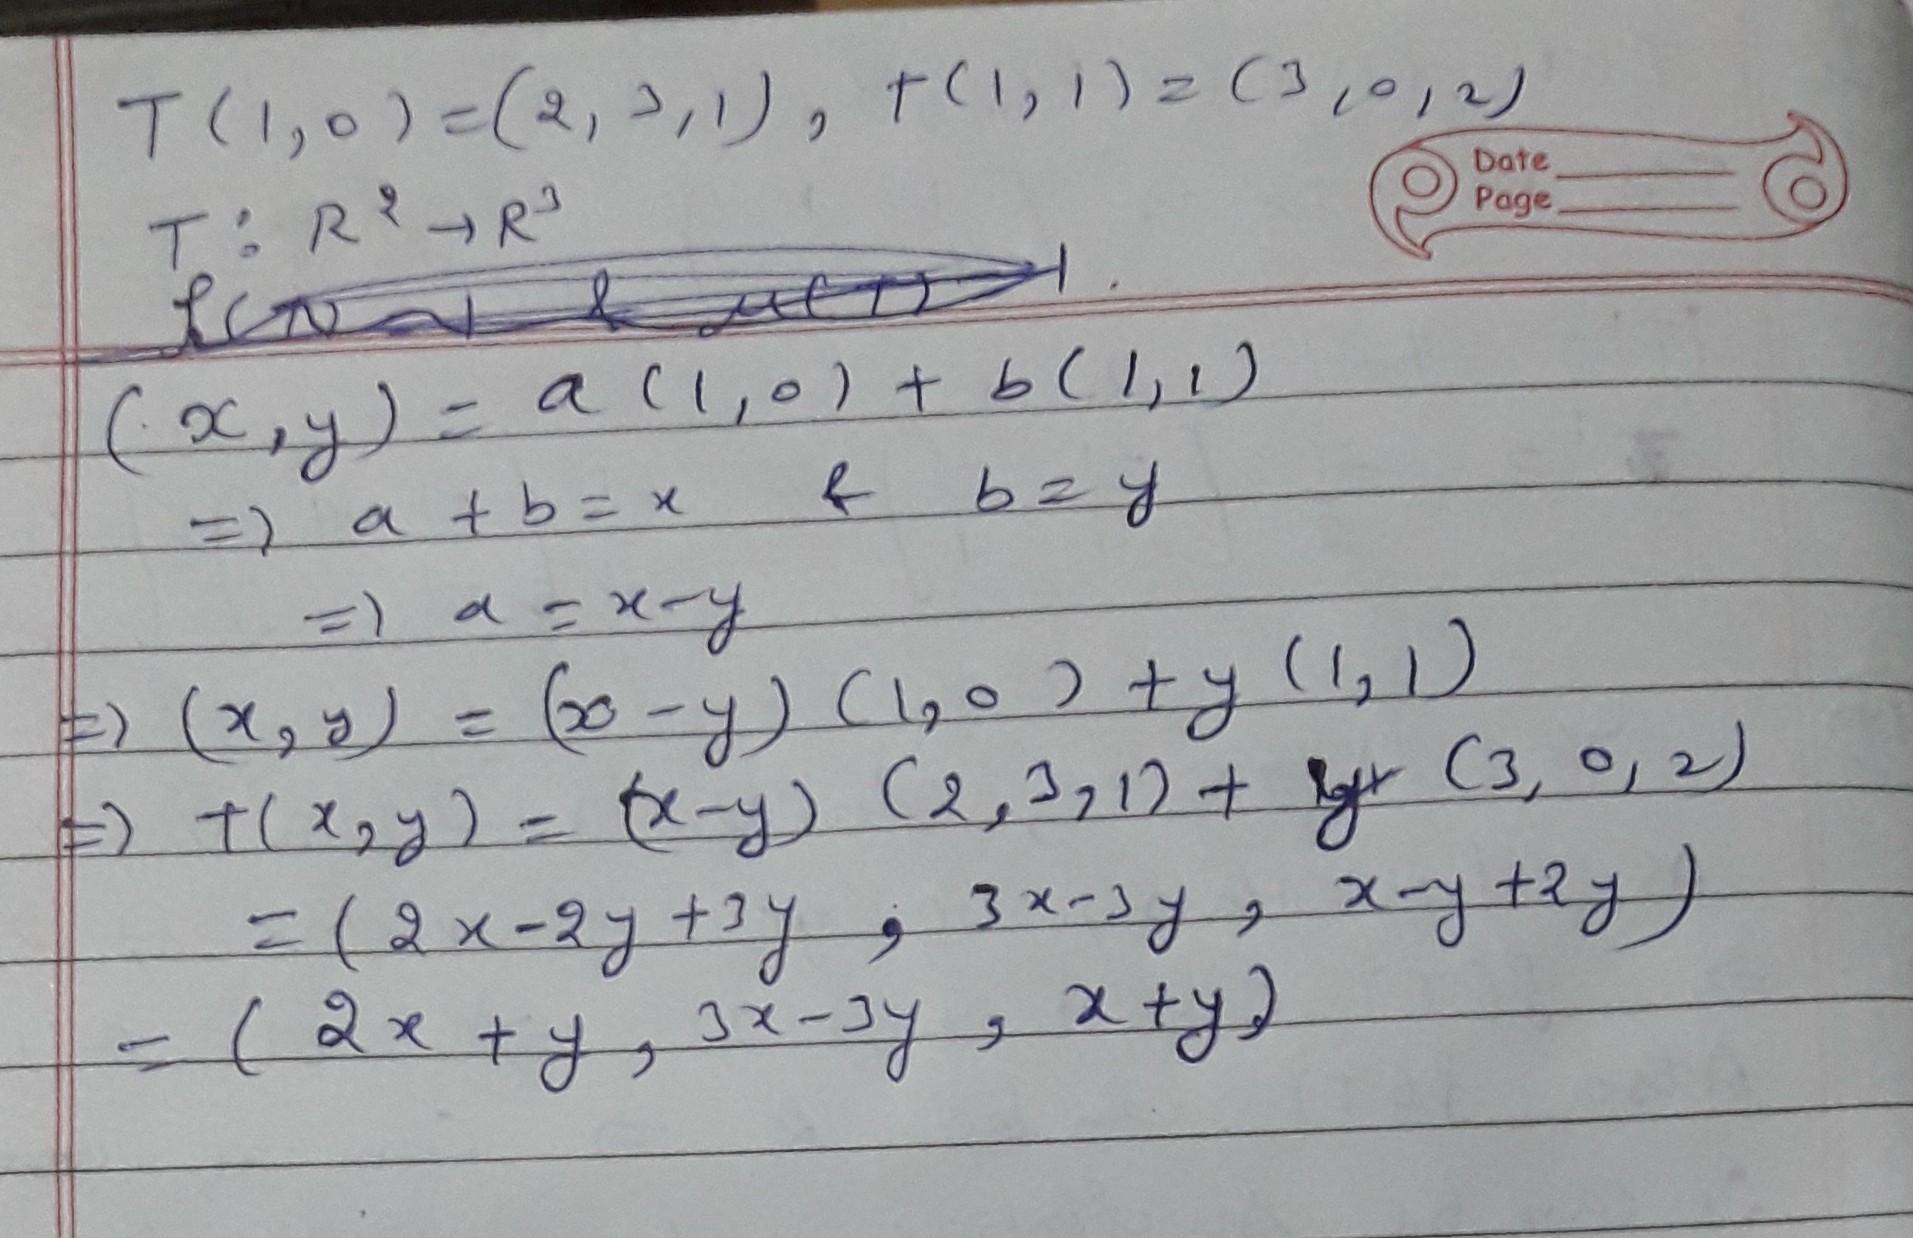 T(1,0)=(2,3,1), T(1,1)=(3,0,2)
Date
Page
T: R² → R³
(x,y) = a(1,0) + b(1,1)
=> a+b=x & b=y
=> a=x-y
=> (x,y) = (x-y) (1,0) + y(1,1)
=> T(x,y) = (x-y) (2,3,1) + y (3,0,2)
=(2x-2y+3y, 3x-3y, x-y+2y)
=(2x+y, 3x-3y, x+y)